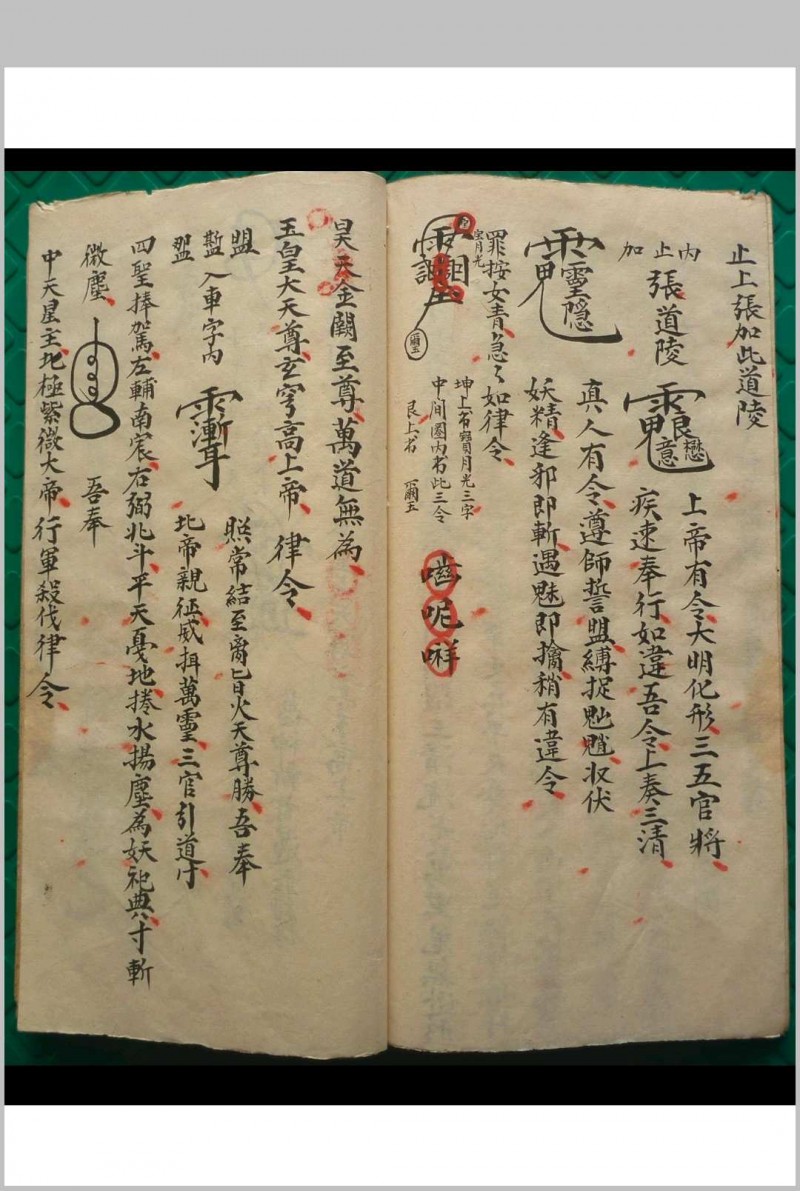 止上張加此道陵
內止加
張道陵
上帝有令大明化形三五官將
疾速奉行如違吾令上奏三清
真人有令尊師誓盟縛捉魈收伏
妖精逢邪即斬遇魅即擒稍有違令
罪按女青急〻如律令
坤上書寶月光三字
中间圈內书此三令
艮上书
昊天金闕至尊萬道無為
玉皇大天尊玄穹高上帝律令
盟
入車字內
照常結至日火天尊勝吾奉
北帝親征威揖萬靈三官引道
四聖捧駕左輔南宸右弼北斗平天憂地捲水揚塵為妖祀典寸斬
微塵
吾奉
中天星主北極紫微大帝行軍殺伐律令